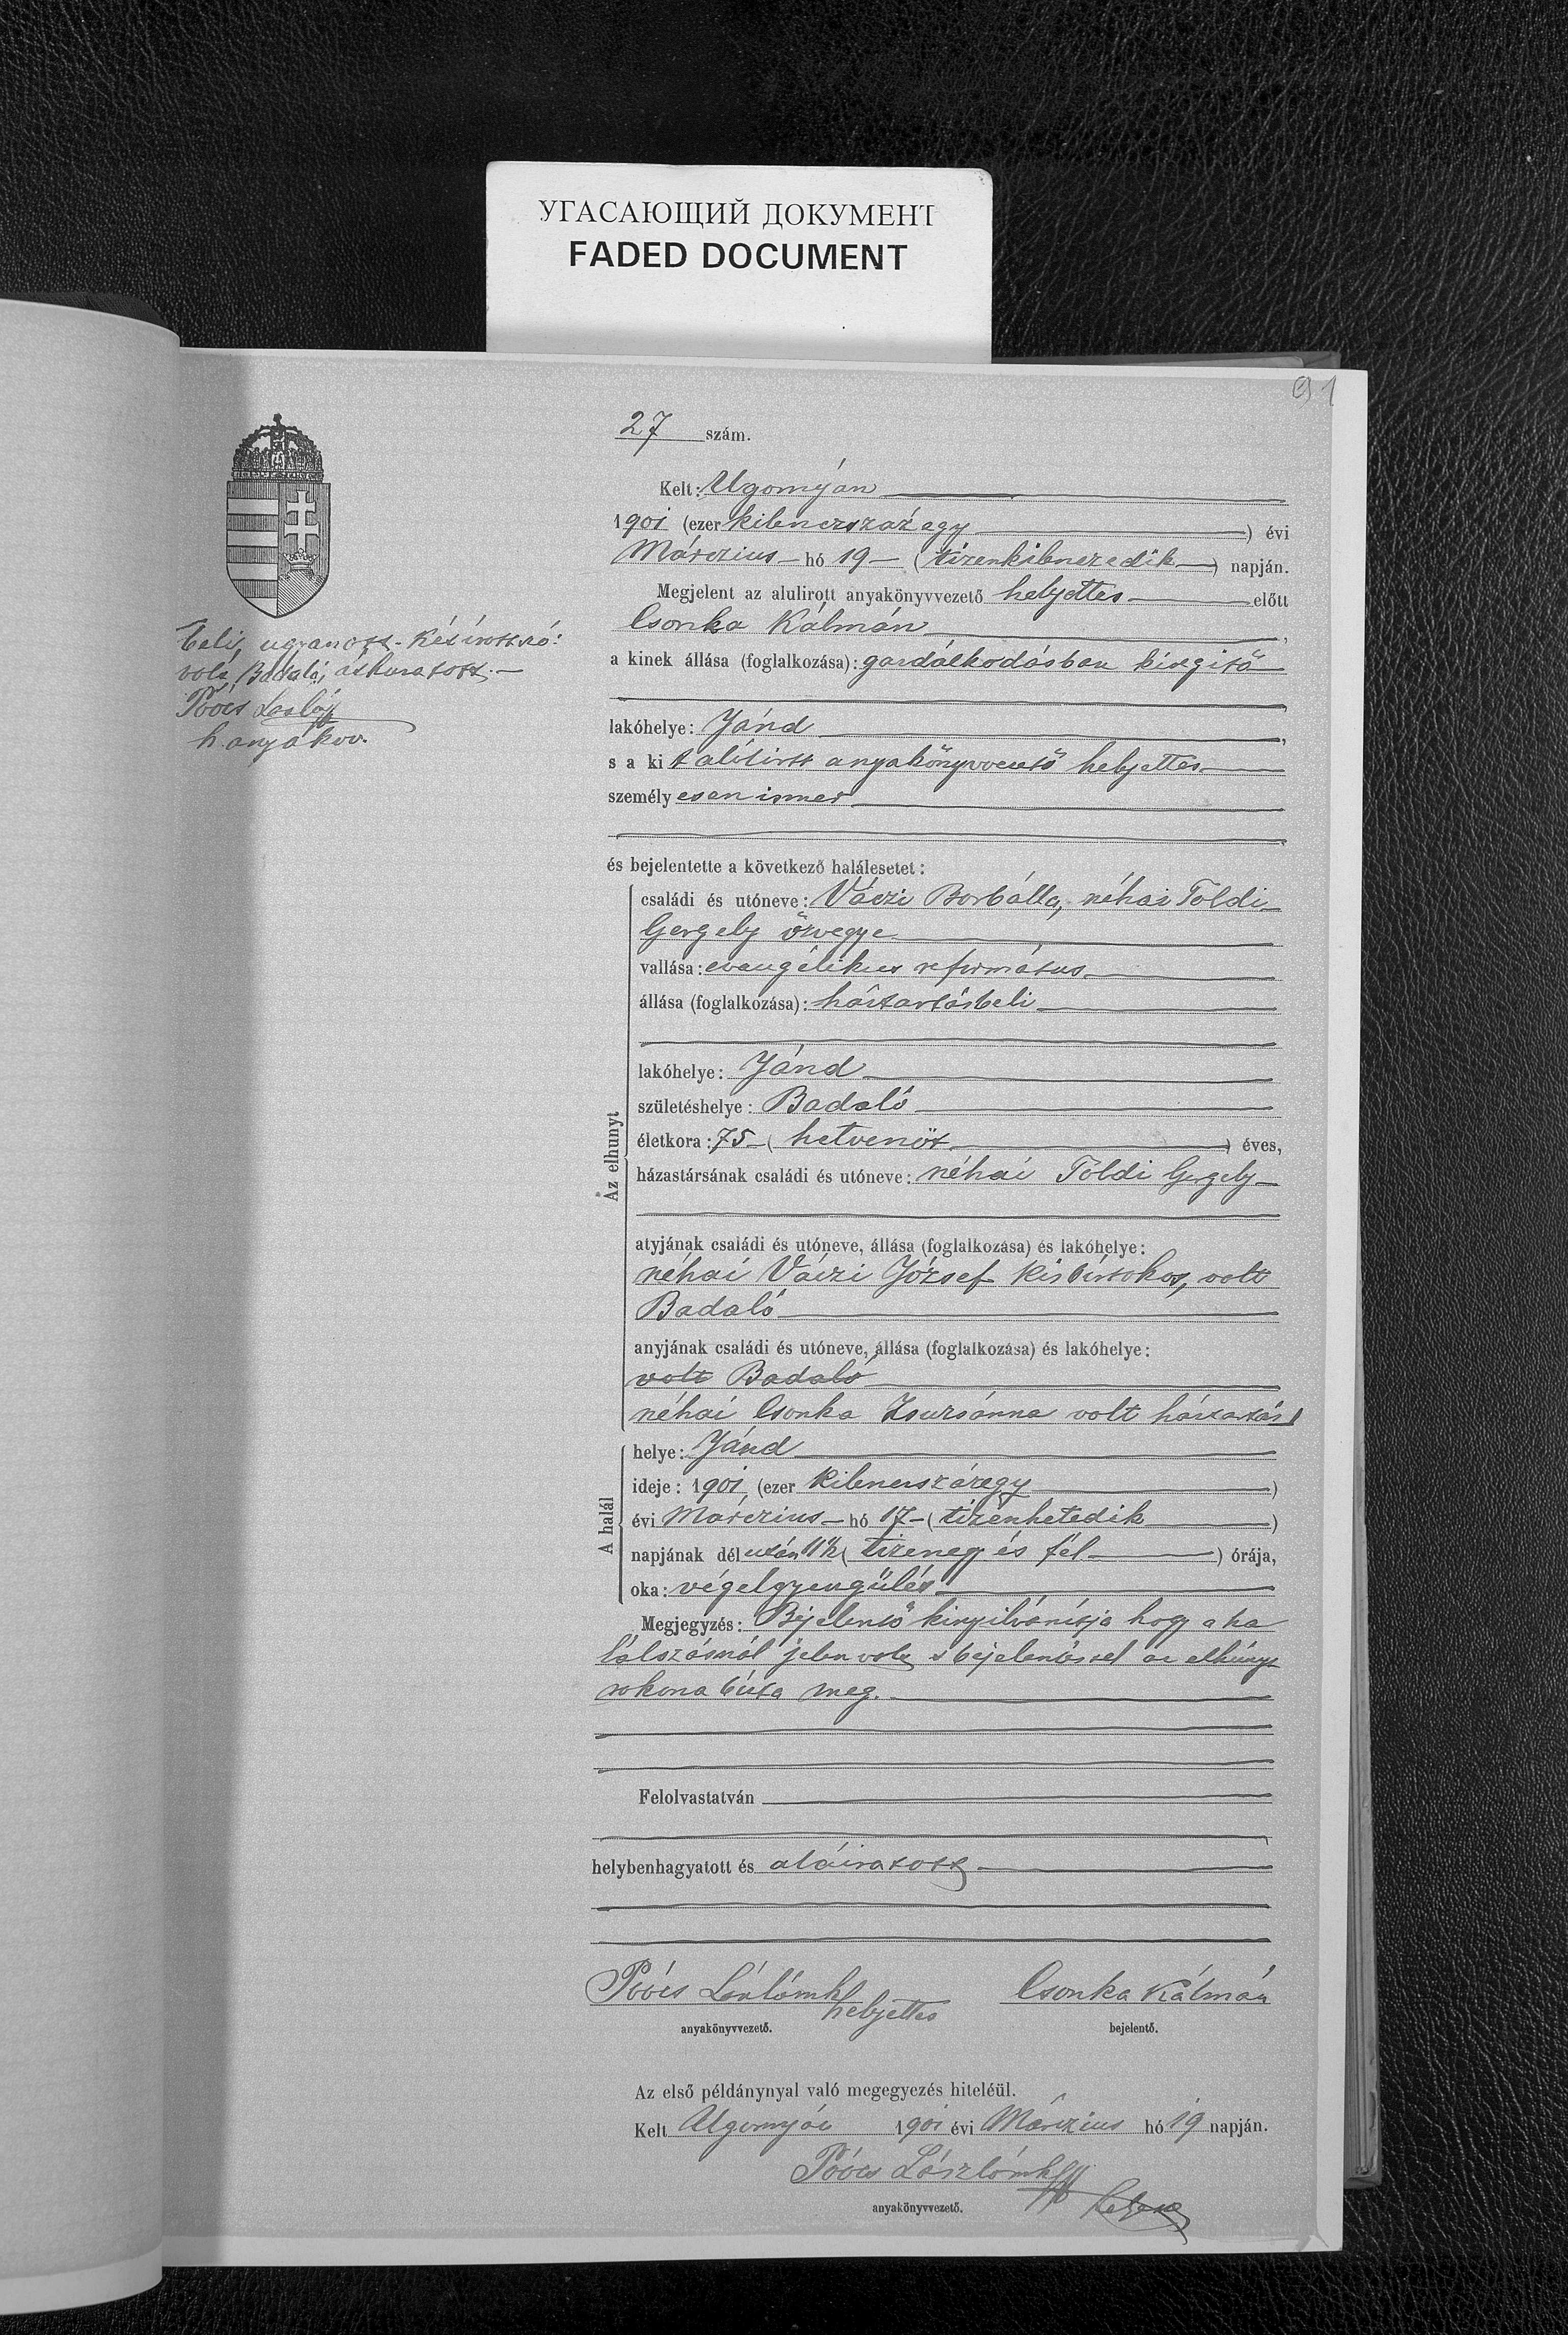 УГАСАЮЩИЙ ДОКУМЕНТ
FADED DOCUMENT
91
27 szám.
Kelt: Ugornyán
1901 (ezer kilenczszáz egy) évi
Márczius hó 19 (tizenkilenczedik) napján.
Megjelent az alulirott anyakönyvvezető helyettes előtt
Csonka Kálmán,
a kinek állása (foglalkozása): gazdálkodásban kisegitő
lakóhelye: Jánd,
s a kit alólirott anyakönyvvezető helyettes
személyesen ismer
és bejelentette a következő halálesetet:
Az elhunyt
családi és utóneve: Váczi Borbálla, néhai Toldi
Gergely özvegye
vallása: evangélikus református
állása (foglalkozása): háztartásbeli
lakóhelye: Jánd
születéshelye: Badaló
életkora: 75 (hetvenöt) éves,
házastársának családi és utóneve: néhai Toldi Gergely
atyjának családi és utóneve, állása (foglalkozása) és lakóhelye:
néhai Váczi József kisbirtokos, volt
Badaló
anyjának családi és utóneve, állása (foglalkozása) és lakóhelye:
volt Badaló
néhai Csonka Zsuzsánna volt háztartás
beli, ugyanott. Két irott szó:
volt Badaló, áthuzatott.
Poócs László
h. anyakvv.
A halál
helye: Jánd
ideje: 1901, (ezer kilenczszázegy)
évi Márczius hó 17 (tizenhetedik)
napjának délután 11½ (tizenegy és fél) órája,
oka: végelgyengülés
Megjegyzés: Bejelentő kinyilvánitja hogy a ha
lálozásnál jelen volt s bejelentéssel az elhúnyt
rokona bizta meg.
Felolvastatván
helybenhagyatott és aláiratott
Poócs László mk
helyettes
anyakönyvvezető.
Csonka Kálmán
bejelentő.
Az első példánynyal való megegyezés hiteléül.
Kelt Ugornyán 1901 évi Márczius hó 19 napján.
Poócs László mk
anyakönyvvezető.